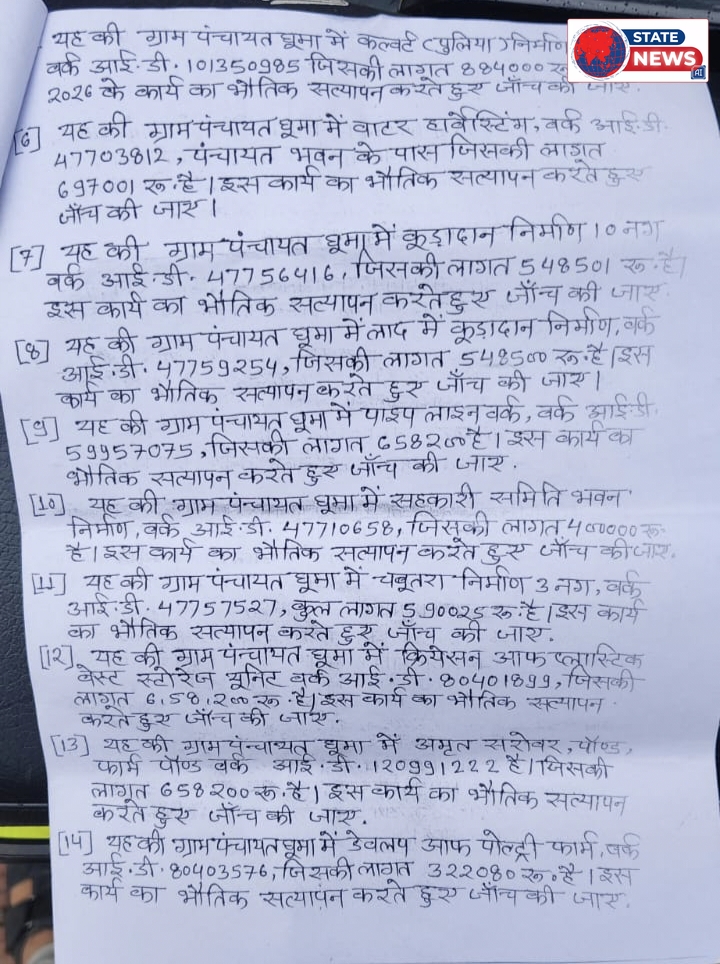 यह की ग्राम पंचायत घूमा में कल्वर्ट (पुलिया) निर्माण
वर्क आई.डी. 101350985 जिसकी लागत 884000 रू
2026 के कार्य का भौतिक सत्यापन करते हुए जाँच की जाए.
STATE
NEWS
AI
[6] यह की ग्राम पंचायत घूमा में वाटर हार्वेस्टिंग, वर्क आई.डी.
47703812, पंचायत भवन के पास जिसकी लागत
697001 रू. है। इस कार्य का भौतिक सत्यापन करते हुए
जाँच की जाए।
[7] यह की ग्राम पंचायत घूमा में कूड़ादान निर्माण 10 नग
वर्क आई.डी. 47756416, जिसकी लागत 548501 रू. है।
इस कार्य का भौतिक सत्यापन करते हुए जाँच की जाए.
[8] यह की ग्राम पंचायत घूमा में लाद में कूड़ादान निर्माण, वर्क
आई.डी. 47759254, जिसकी लागत 548500 रू. है। इस
कार्य का भौतिक सत्यापन करते हुए जाँच की जाए।
[9] यह की ग्राम पंचायत घूमा में पाइप लाइन वर्क, वर्क आई.डी.
59957075, जिसकी लागत 658200 है। इस कार्य का
भौतिक सत्यापन करते हुए जाँच की जाए.
[10] यह की ग्राम पंचायत घूमा में सहकारी समिति भवन
निर्माण, वर्क आई.डी. 47710658, जिसकी लागत 400000 रू.
है। इस कार्य का भौतिक सत्यापन करते हुए जाँच की जाए.
[11] यह की ग्राम पंचायत घूमा में चबूतरा निर्माण 3 नग, वर्क
आई.डी. 47757527, कुल लागत 590025 रू. है। इस कार्य
का भौतिक सत्यापन करते हुए जाँच की जाए.
[12] यह की ग्राम पंचायत घूमा में क्रियेसन आफ प्लास्टिक
वेस्ट स्टोरेज यूनिट वर्क आई.डी. 80401899, जिसकी
लागत 6,58,200 रू. है। इस कार्य का भौतिक सत्यापन
करते हुए जाँच की जाए.
[13] यह की ग्राम पंचायत घूमा में अमृत सरोवर, पॉण्ड,
फार्म पॉण्ड वर्क आई.डी. 120991222 है। जिसकी
लागत 658200 रू. है। इस कार्य का भौतिक सत्यापन
करते हुए जाँच की जाए.
[14] यह की ग्राम पंचायत घूमा में डेवलप आफ पोल्ट्री फार्म, वर्क
आई.डी. 80403576, जिसकी लागत 322080 रू. है। इस
कार्य का भौतिक सत्यापन करते हुए जाँच की जाए.